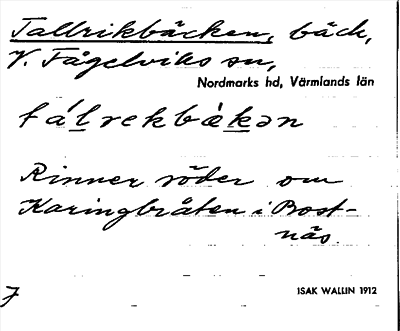 Tallrikbäcken, bäck,
V. Fågelviks sn,
Nordmarks hd, Värmlands län
Rinner söder om
Karingbråten i Bost-
näs.
7
ISAK WALLIN 1912